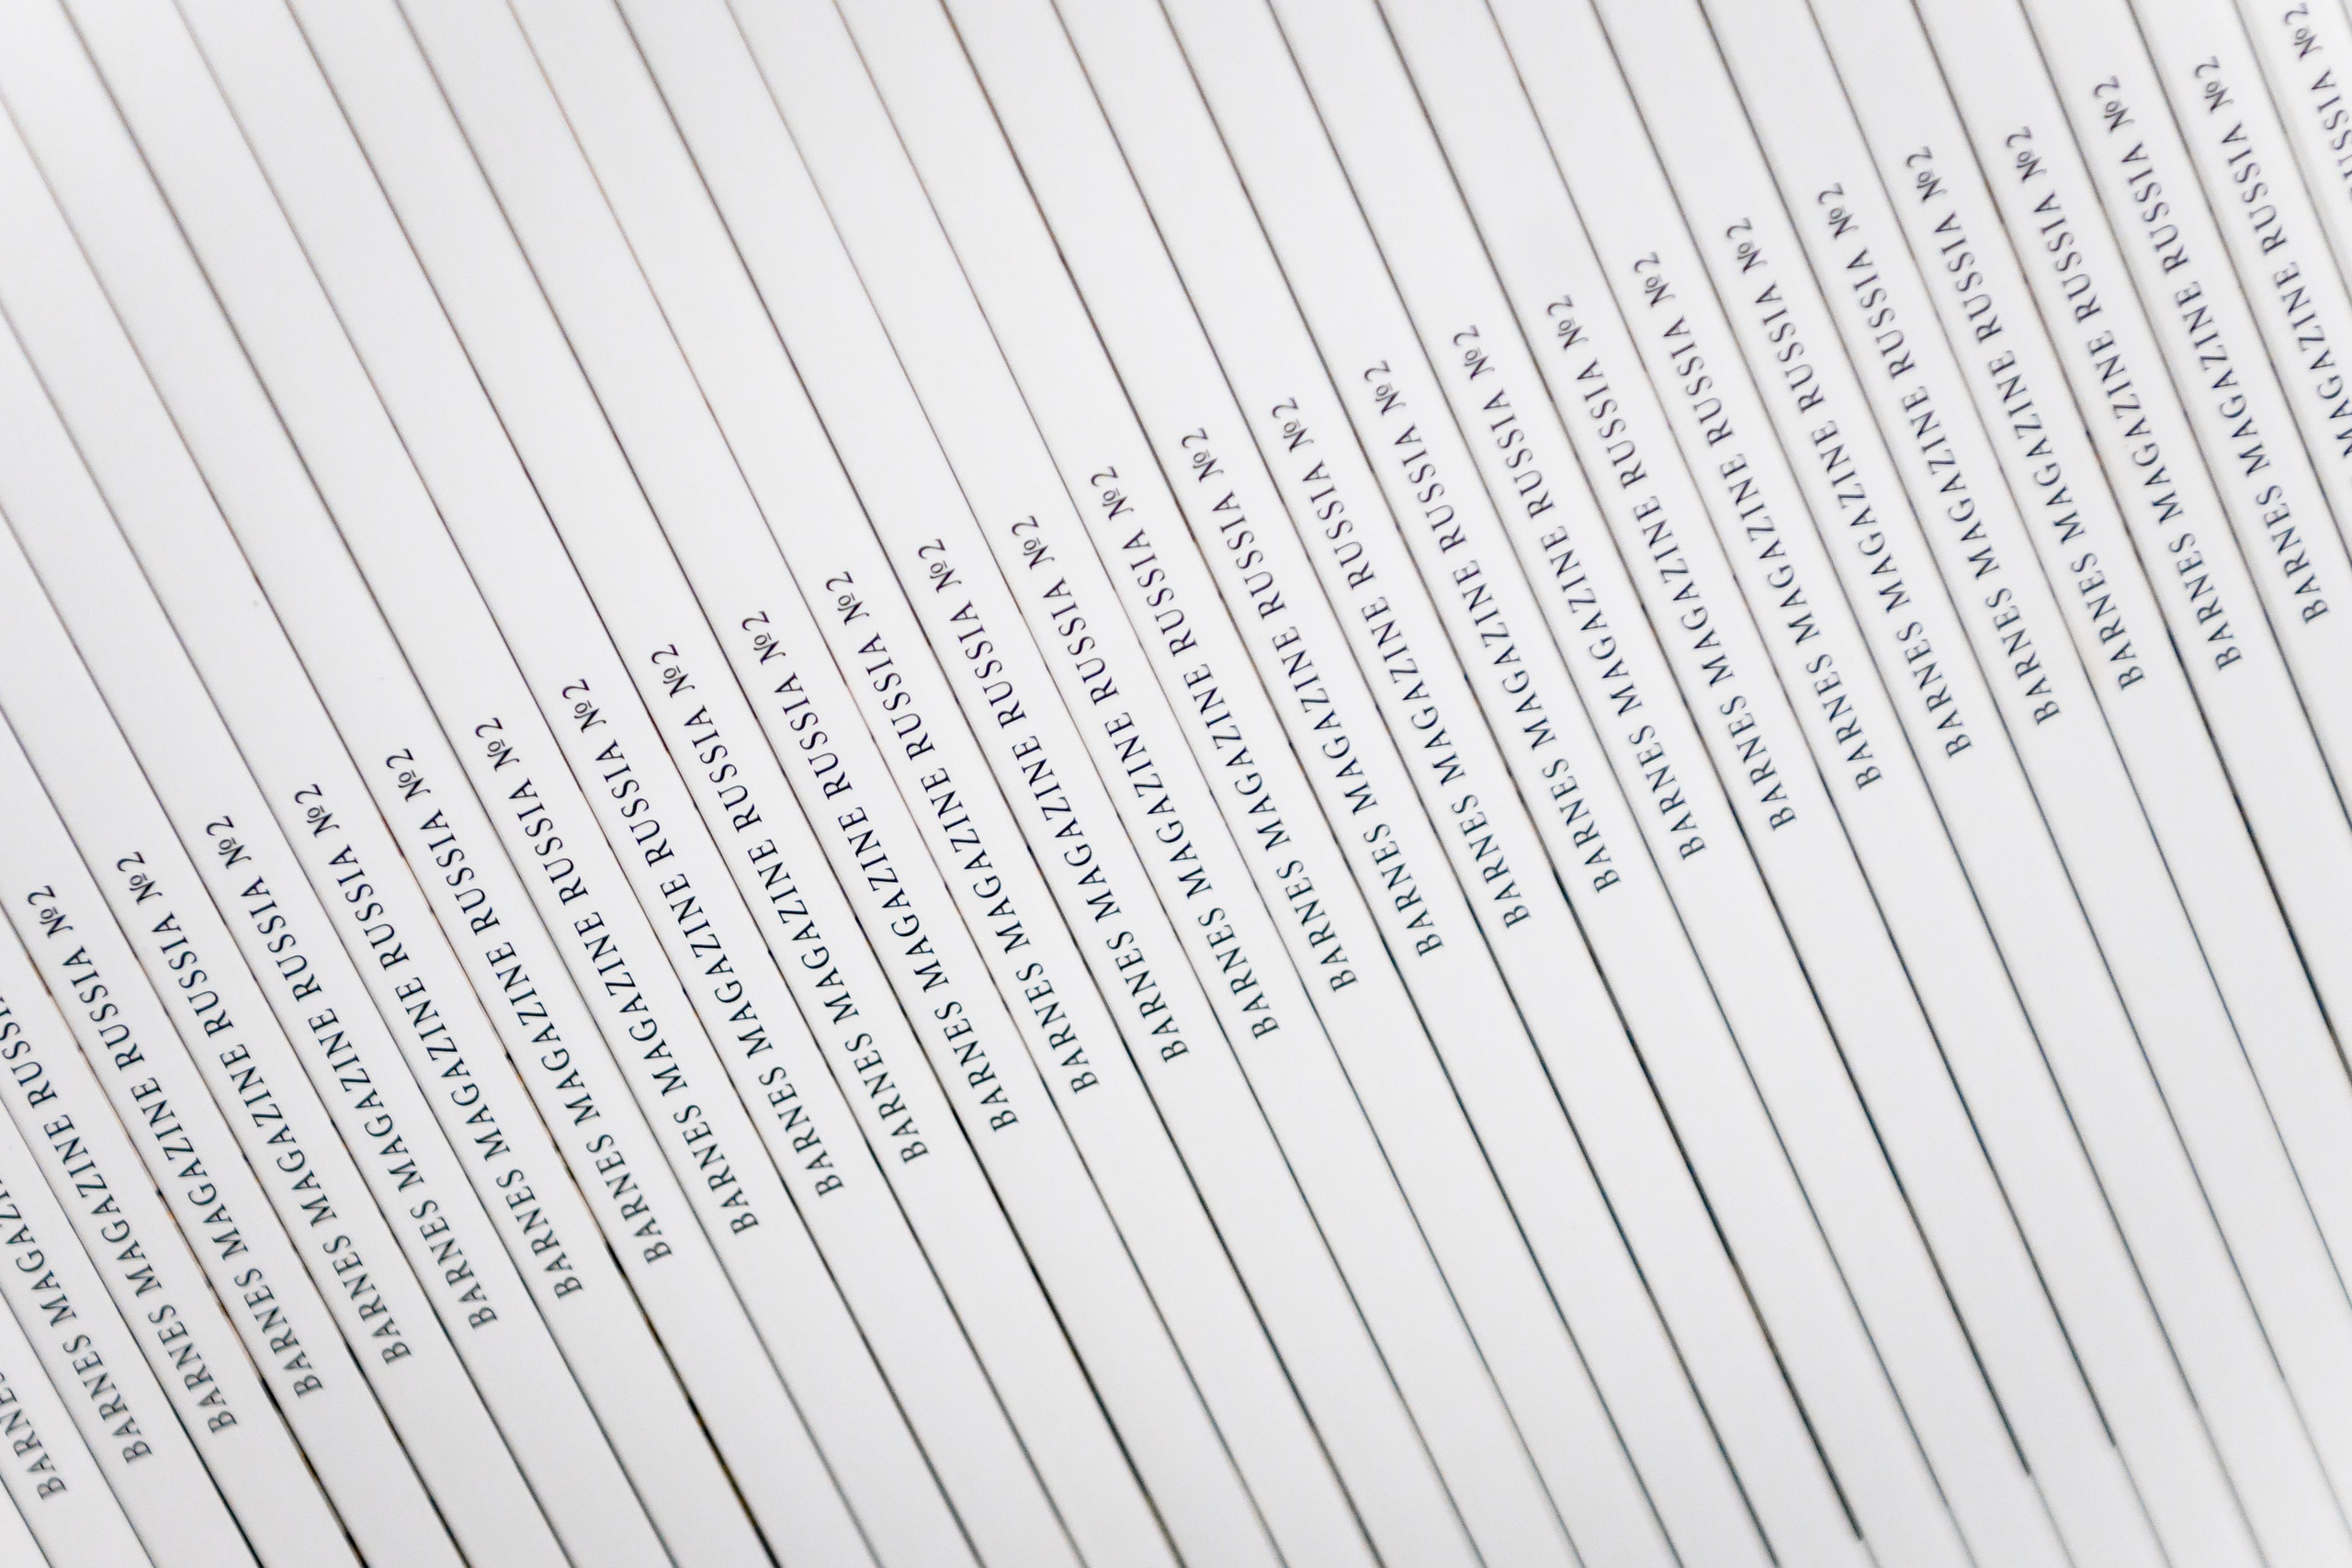 BARNES
BARNES MAGAZIN
BARNES MAGAZINE RUSSI
BARNES MAGAZINE RUSSIA №2
BARNES MAGAZINE RUSSIA №2
BARNES MAGAZINE RUSSIA №2
BARNES MAGAZINE RUSSIA №2
BARNES MAGAZINE RUSSIA №2
BARNES MAGAZINE RUSSIA №2
BARNES MAGAZINE RUSSIA №2
BARNES MAGAZINE RUSSIA №2
BARNES MAGAZINE RUSSIA №2
BARNES MAGAZINE RUSSIA №2
BARNES MAGAZINE RUSSIA №2
BARNES MAGAZINE RUSSIA №2
BARNES MAGAZINE RUSSIA №2
BARNES MAGAZINE RUSSIA №2
BARNES MAGAZINE RUSSIA №2
BARNES MAGAZINE RUSSIA №2
BARNES MAGAZINE RUSSIA №2
BARNES MAGAZINE RUSSIA №2
BARNES MAGAZINE RUSSIA №2
BARNES MAGAZINE RUSSIA №2
BARNES MAGAZINE RUSSIA №2
BARNES MAGAZINE RUSSIA №2
BARNES MAGAZINE RUSSIA №2
BARNES MAGAZINE RUSSIA №2
MAGAZINE RUSSIA №2
RUSSIA №2